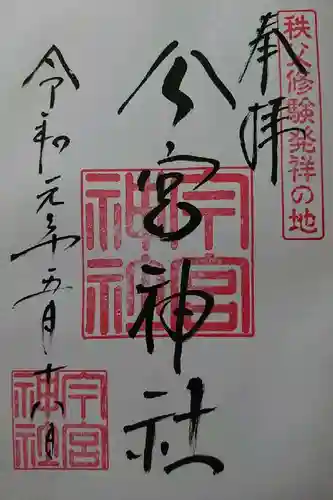 秩父修験発祥の地
奉拝
今宮神社
今宮
神社
令和元年五月十六日
今宮
神社